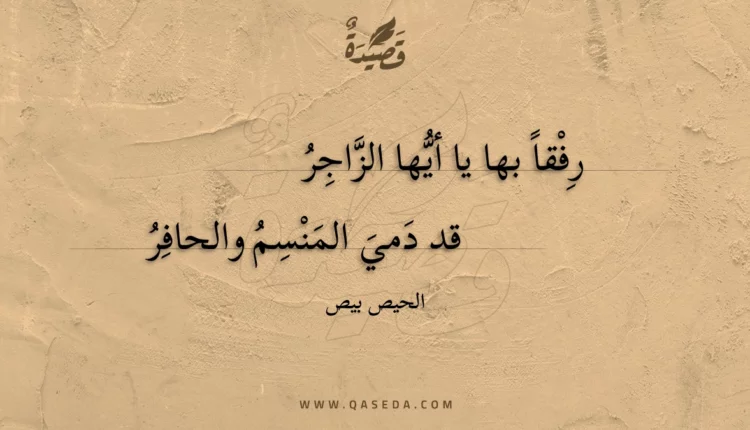 قَصِيْدَةٌ
رِفْقاً بها يا أيُّها الزَّاجِرُ
قد دَميَ المَنْسِمُ والحافِرُ
الحيص بيص
WWW.QASEDA.COM